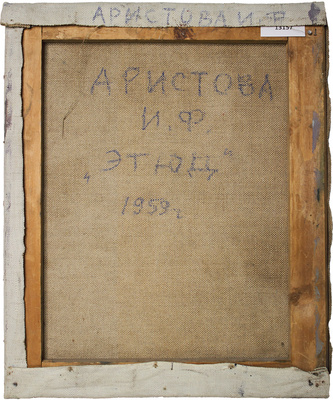 АРИСТОВА И.Ф.
13157
АРИСТОВА
И.Ф.
„ЭТЮД"
1959г